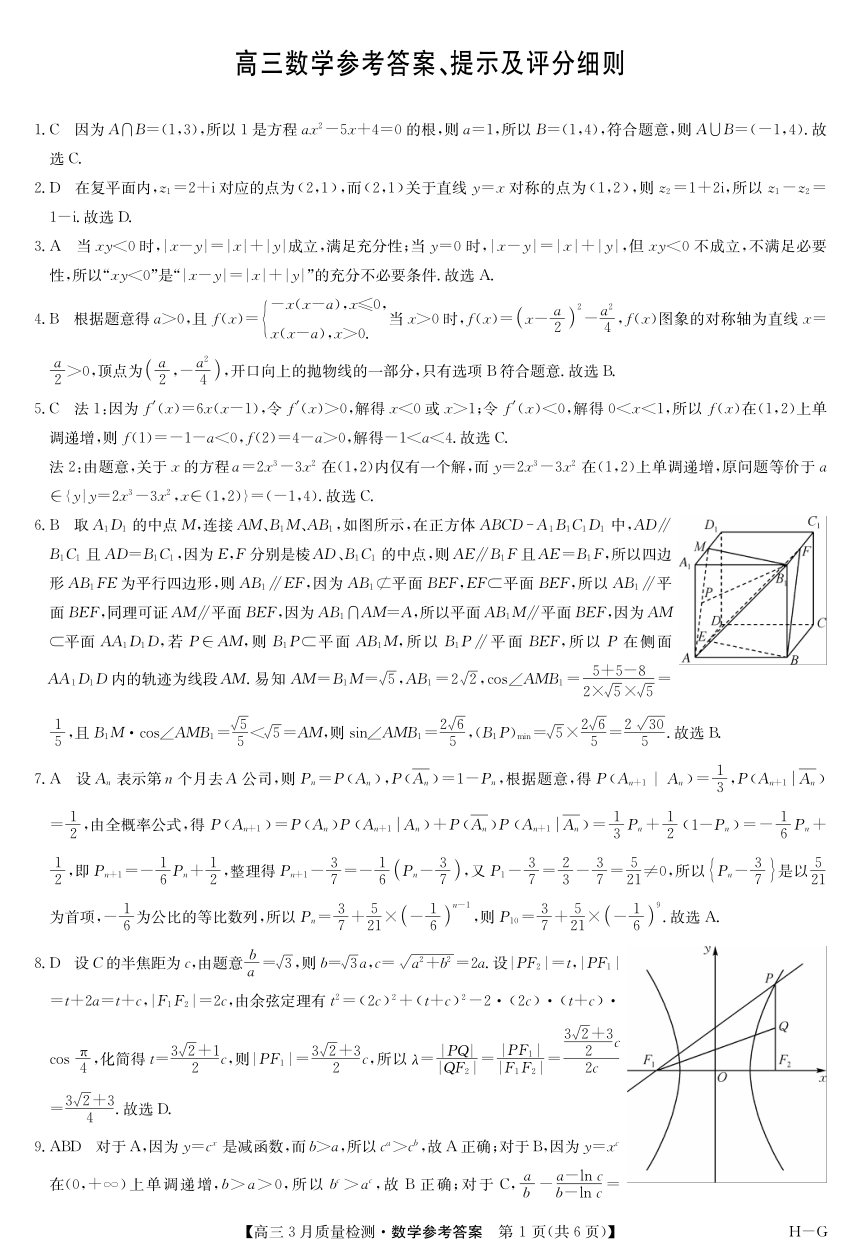 高三数学参考答案、提示及评分细则
1. C 因为 A∩B=(1,3),所以 1 是方程 ax²-5x+4=0 的根,则 a=1,所以 B=(1,4),符合题意,则 A∪B=(-1,4). 故
选 C.
2. D 在复平面内,z₁=2+i 对应的点为(2,1),而(2,1)关于直线 y=x 对称的点为(1,2),则 z₂=1+2i,所以 z₁-z₂=
1-i. 故选 D.
3. A 当 xy<0 时,|x-y|=|x|+|y|成立,满足充分性;当 y=0 时,|x-y|=|x|+|y|,但 xy<0 不成立,不满足必要
性,所以“xy<0”是“|x-y|=|x|+|y|”的充分不必要条件. 故选 A.
4. B 根据题意得 a>0,且 f(x)={-x(x-a),x≤0, x(x-a),x>0. 当 x>0 时,f(x)=(x-a/2)²-a²/4,f(x)图象的对称轴为直线 x=
a/2>0,顶点为(a/2,-a²/4),开口向上的抛物线的一部分,只有选项 B 符合题意. 故选 B.
5. C 法 1:因为 f′(x)=6x(x-1),令 f′(x)>0,解得 x<0 或 x>1;令 f′(x)<0,解得 0<x<1,所以 f(x)在(1,2)上单
调递增,则 f(1)=-1-a<0,f(2)=4-a>0,解得-1<a<4. 故选 C.
法 2:由题意,关于 x 的方程 a=2x³-3x² 在(1,2)内仅有一个解,而 y=2x³-3x² 在(1,2)上单调递增,原问题等价于 a
∈{y|y=2x³-3x²,x∈(1,2)}=(-1,4). 故选 C.
6. B 取 A₁D₁ 的中点 M,连接 AM、B₁M、AB₁,如图所示,在正方体 ABCD-A₁B₁C₁D₁ 中,AD∥
B₁C₁ 且 AD=B₁C₁,因为 E,F 分别是棱 AD、B₁C₁ 的中点,则 AE∥B₁F 且 AE=B₁F,所以四边
形 AB₁FE 为平行四边形,则 AB₁∥EF,因为 AB₁⊄平面 BEF,EF⊂平面 BEF,所以 AB₁∥平
面 BEF,同理可证 AM∥平面 BEF,因为 AB₁∩AM=A,所以平面 AB₁M∥平面 BEF,因为 AM
⊂平面 AA₁D₁D,若 P∈AM,则 B₁P⊂平面 AB₁M,所以 B₁P∥平面 BEF,所以 P 在侧面
AA₁D₁D 内的轨迹为线段 AM. 易知 AM=B₁M=√5,AB₁=2√2,cos∠AMB₁=(5+5-8)/(2×√5×√5)=
1/5,且 B₁M·cos∠AMB₁=√5/5<√5=AM,则 sin∠AMB₁=2√6/5,(B₁P)min=√5×2√6/5=2√30/5. 故选 B.
D₁
C₁
M
F
A₁
B₁
P
D
C
E
A
B
7. A 设 Aₙ 表示第 n 个月去 A 公司,则 Pₙ=P(Aₙ),P(A̅ₙ)=1-Pₙ,根据题意,得 P(Aₙ₊₁|Aₙ)=1/3,P(Aₙ₊₁|A̅ₙ)
=1/2,由全概率公式,得 P(Aₙ₊₁)=P(Aₙ)P(Aₙ₊₁|Aₙ)+P(A̅ₙ)P(Aₙ₊₁|A̅ₙ)=1/3Pₙ+1/2(1-Pₙ)=-1/6Pₙ+
1/2,即 Pₙ₊₁=-1/6Pₙ+1/2,整理得 Pₙ₊₁-3/7=-1/6(Pₙ-3/7),又 P₁-3/7=2/3-3/7=5/21≠0,所以{Pₙ-3/7}是以5/21
为首项,-1/6为公比的等比数列,所以 Pₙ=3/7+5/21×(-1/6)ⁿ⁻¹,则 P₁₀=3/7+5/21×(-1/6)⁹. 故选 A.
8. D 设 C 的半焦距为 c,由题意b/a=√3,则 b=√3a,c=√(a²+b²)=2a. 设|PF₂|=t,|PF₁|
=t+2a=t+c,|F₁F₂|=2c,由余弦定理有 t²=(2c)²+(t+c)²-2·(2c)·(t+c)·
cos π/4,化简得 t=(3√2+1)/2 c,则|PF₁|=(3√2+3)/2 c,所以 λ=|PQ|/|QF₂|=|PF₁|/|F₁F₂|=((3√2+3)/2 c)/2c
=(3√2+3)/4. 故选 D.
y
P
Q
F₁
F₂
O
x
9. ABD 对于 A,因为 y=cˣ 是减函数,而 b>a,所以 cᵃ>cᵇ,故 A 正确;对于 B,因为 y=xᶜ
在(0,+∞)上单调递增,b>a>0,所以 bᶜ>aᶜ,故 B 正确;对于 C,a/b-(a-ln c)/(b-ln c)=
【高三 3 月质量检测·数学参考答案 第 1 页(共 6 页)】 H-G